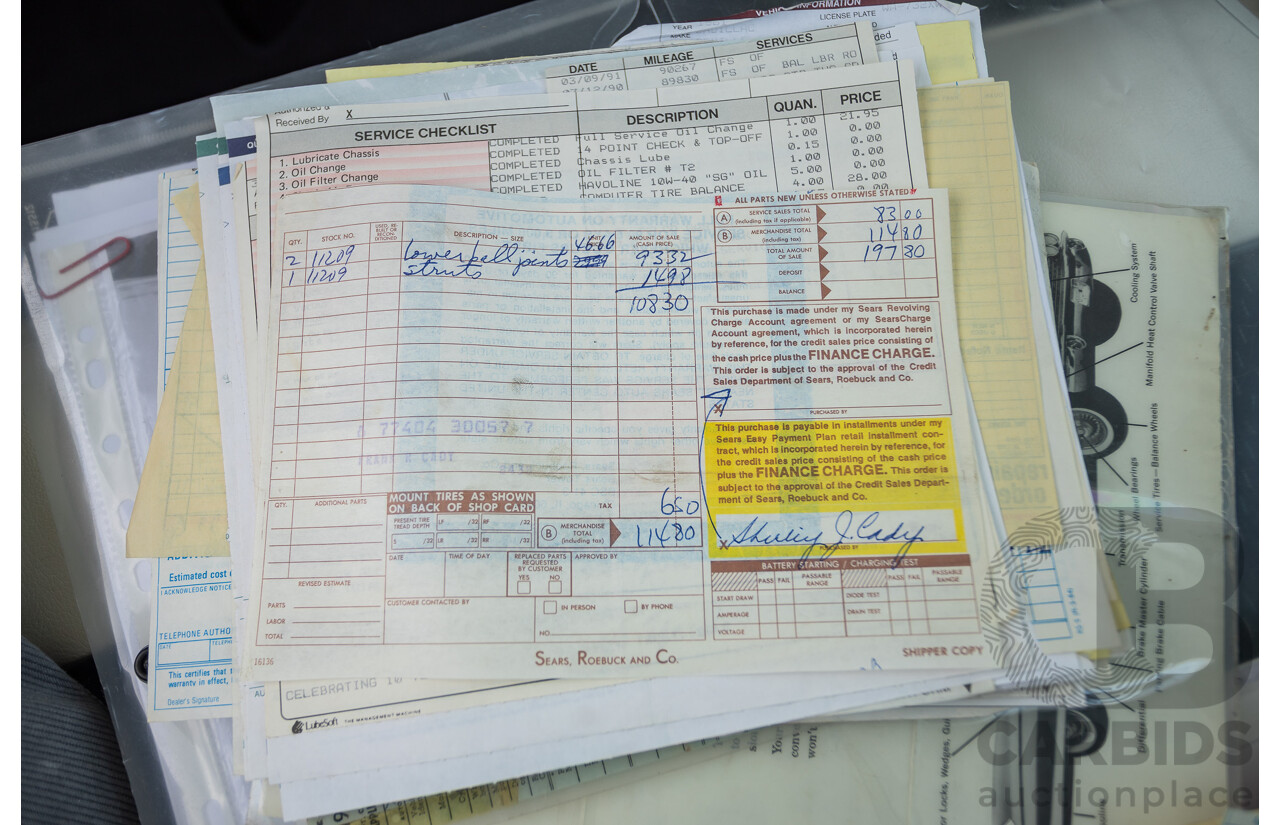 VEHICLE INFORMATION
YEAR
MAKE
LICENSE PLATE
DATE MILEAGE SERVICES
03/09/91 90267 FS OF BAL LBR RO
89830 FS OF
Received By X
SERVICE CHECKLIST
DESCRIPTION QUAN. PRICE
1. Lubricate Chassis
2. Oil Change
3. Oil Filter Change
COMPLETED
COMPLETED
COMPLETED
COMPLETED
COMPLETED
Full Service Oil Change 1.00 21.95
14 POINT CHECK & TOP-OFF 1.00 0.00
Chassis Lube 0.15 0.00
OIL FILTER # T2 1.00 0.00
HAVOLINE 10W-40 "SG" OIL 5.00 0.00
COMPUTER TIRE BALANCE 4.00 28.00
ALL PARTS NEW UNLESS OTHERWISE STATED
QTY. STOCK NO. DESCRIPTION — SIZE AMOUNT OF SALE (CASH PRICE)
2 11209 lower ball joints 46.66 9332
1 11209 struts 1498
10830
(A) SERVICE SALES TOTAL (including tax if applicable) 83 00
(B) MERCHANDISE TOTAL (including tax) 114 80
TOTAL AMOUNT OF SALE 197 80
DEPOSIT
BALANCE
This purchase is made under my Sears Revolving
Charge Account agreement or my SearsCharge
Account agreement, which is incorporated herein
by reference, for the credit sales price consisting of
the cash price plus the FINANCE CHARGE.
This order is subject to the approval of the Credit
Sales Department of Sears, Roebuck and Co.
X
PURCHASED BY
This purchase is payable in installments under my
Sears Easy Payment Plan retail installment con-
tract, which is incorporated herein by reference, for
the credit sales price consisting of the cash price
plus the FINANCE CHARGE. This order is
subject to the approval of the Credit Sales Depart-
ment of Sears, Roebuck and Co.
X Shirley J. Cady
PURCHASED BY
77404 30057 7
FRANK R CADY
QTY. ADDITIONAL PARTS
MOUNT TIRES AS SHOWN
ON BACK OF SHOP CARD
PRESENT TIRE TREAD DEPTH LF /32 RF /32
S /32 LR /32 RR /32
TAX 650
(B) MERCHANDISE TOTAL (including tax) 11480
DATE TIME OF DAY REPLACED PARTS REQUESTED BY CUSTOMER YES NO APPROVED BY
REVISED ESTIMATE
PARTS
LABOR
TOTAL
CUSTOMER CONTACTED BY
IN PERSON BY PHONE
NO.
BATTERY STARTING / CHARGING TEST
PASS FAIL PASSABLE RANGE PASS FAIL PASSABLE RANGE
START DRAW DIODE TEST
AMPERAGE DRAIN TEST
VOLTAGE
16136 SEARS, ROEBUCK AND CO. SHIPPER COPY
Estimated cost
I ACKNOWLEDGE NOTICE
TELEPHONE AUTHO
DATE
This certifies that
warranty in effect,
Dealer's Signature
CELEBRATING 10
LubeSoft THE MANAGEMENT MACHINE
Cooling System
Manifold Heat Control Valve Shaft
Service Tires — Balance Wheels
Wheel Bearings
Brake Master Cylinder
Parking Brake Cable
Transmission
Differential
or Locks, Wedges, Gui
CARBIDS
auctionplace